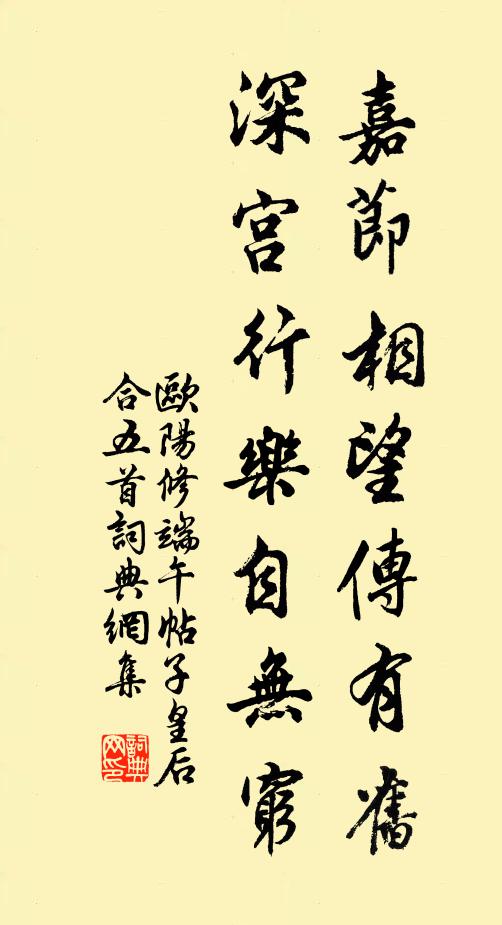 嘉節相望傳有舊
深宮行樂自無窮
歐陽修端午帖子皇后
合五首詞典網集
詞典网印